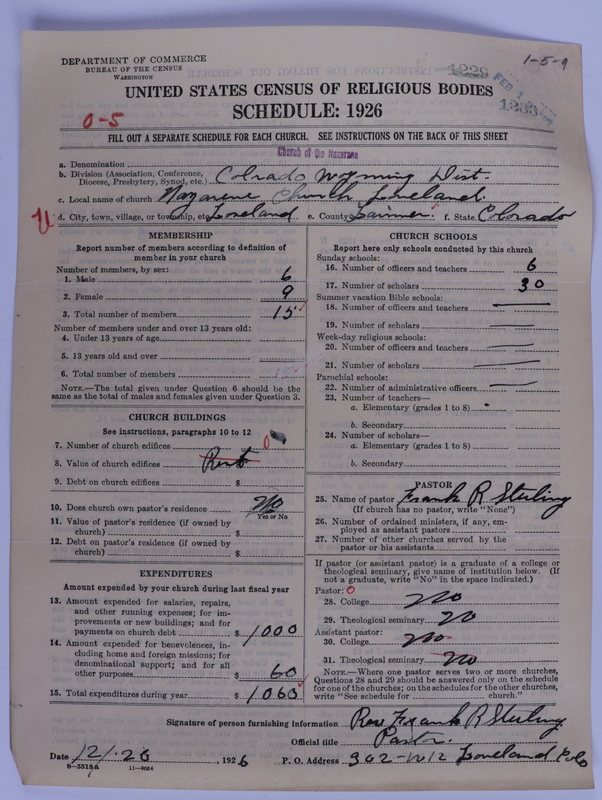 DEPARTMENT OF COMMERCE
BUREAU OF THE CENSUS
WASHINGTON
1229
FEB
1-5-9
UNITED STATES CENSUS OF RELIGIOUS BODIES
SCHEDULE: 1926
0-5
FILL OUT A SEPARATE SCHEDULE FOR EACH CHURCH. SEE INSTRUCTIONS ON THE BACK OF THIS SHEET
Church of the Nazarene
a. Denomination
b. Division (Association, Conference, Diocese, Presbytery, Synod, etc.) Colorado Wyoming Dist.
c. Local name of church Nazarene Church Loveland.
d. City, town, village, or township, etc. Loveland e. County Larimer. f. State Colorado
MEMBERSHIP
Report number of members according to definition of
member in your church
Number of members, by sex:
1. Male 6
2. Female 9
3. Total number of members 15
Number of members under and over 13 years old:
4. Under 13 years of age
5. 13 years old and over
6. Total number of members 15
NOTE.—The total given under Question 6 should be the
same as the total of males and females given under Question 3.
CHURCH BUILDINGS
See instructions, paragraphs 10 to 12
7. Number of church edifices 0
8. Value of church edifices Rent
9. Debt on church edifices $
10. Does church own pastor's residence No
Yes or No
11. Value of pastor's residence (if owned by
church) $
12. Debt on pastor's residence (if owned by
church) $
EXPENDITURES
Amount expended by your church during last fiscal year
13. Amount expended for salaries, repairs,
and other running expenses; for im-
provements or new buildings; and for
payments on church debt $ 1000
14. Amount expended for benevolences, in-
cluding home and foreign missions; for
denominational support; and for all
other purposes $ 60
15. Total expenditures during year $ 1060
CHURCH SCHOOLS
Report here only schools conducted by this church
Sunday schools:
16. Number of officers and teachers 6
17. Number of scholars 30
Summer vacation Bible schools:
18. Number of officers and teachers
19. Number of scholars
Week-day religious schools:
20. Number of officers and teachers
21. Number of scholars
Parochial schools:
22. Number of administrative officers
23. Number of teachers—
a. Elementary (grades 1 to 8)
b. Secondary
24. Number of scholars—
a. Elementary (grades 1 to 8)
b. Secondary
PASTOR
25. Name of pastor Frank R Sterling
(If church has no pastor, write "None")
26. Number of ordained ministers, if any, em-
ployed as assistant pastors
27. Number of other churches served by the
pastor or his assistants
If pastor (or assistant pastor) is a graduate of a college or
theological seminary, give name of institution below. (If
not a graduate, write "No" in the space indicated.)
Pastor: 0
28. College No
29. Theological seminary No
Assistant pastor:
30. College No
31. Theological seminary No
NOTE.—Where one pastor serves two or more churches,
Questions 28 and 29 should be answered only on the schedule
for one of the churches; on the schedules for the other churches,
write "See schedule for church."
Signature of person furnishing information Rev Frank R Sterling
Official title Pastor.
Date 12/1-26, 1926 P. O. Address 302-W 12 Loveland Colo
8-5518a 11-9064